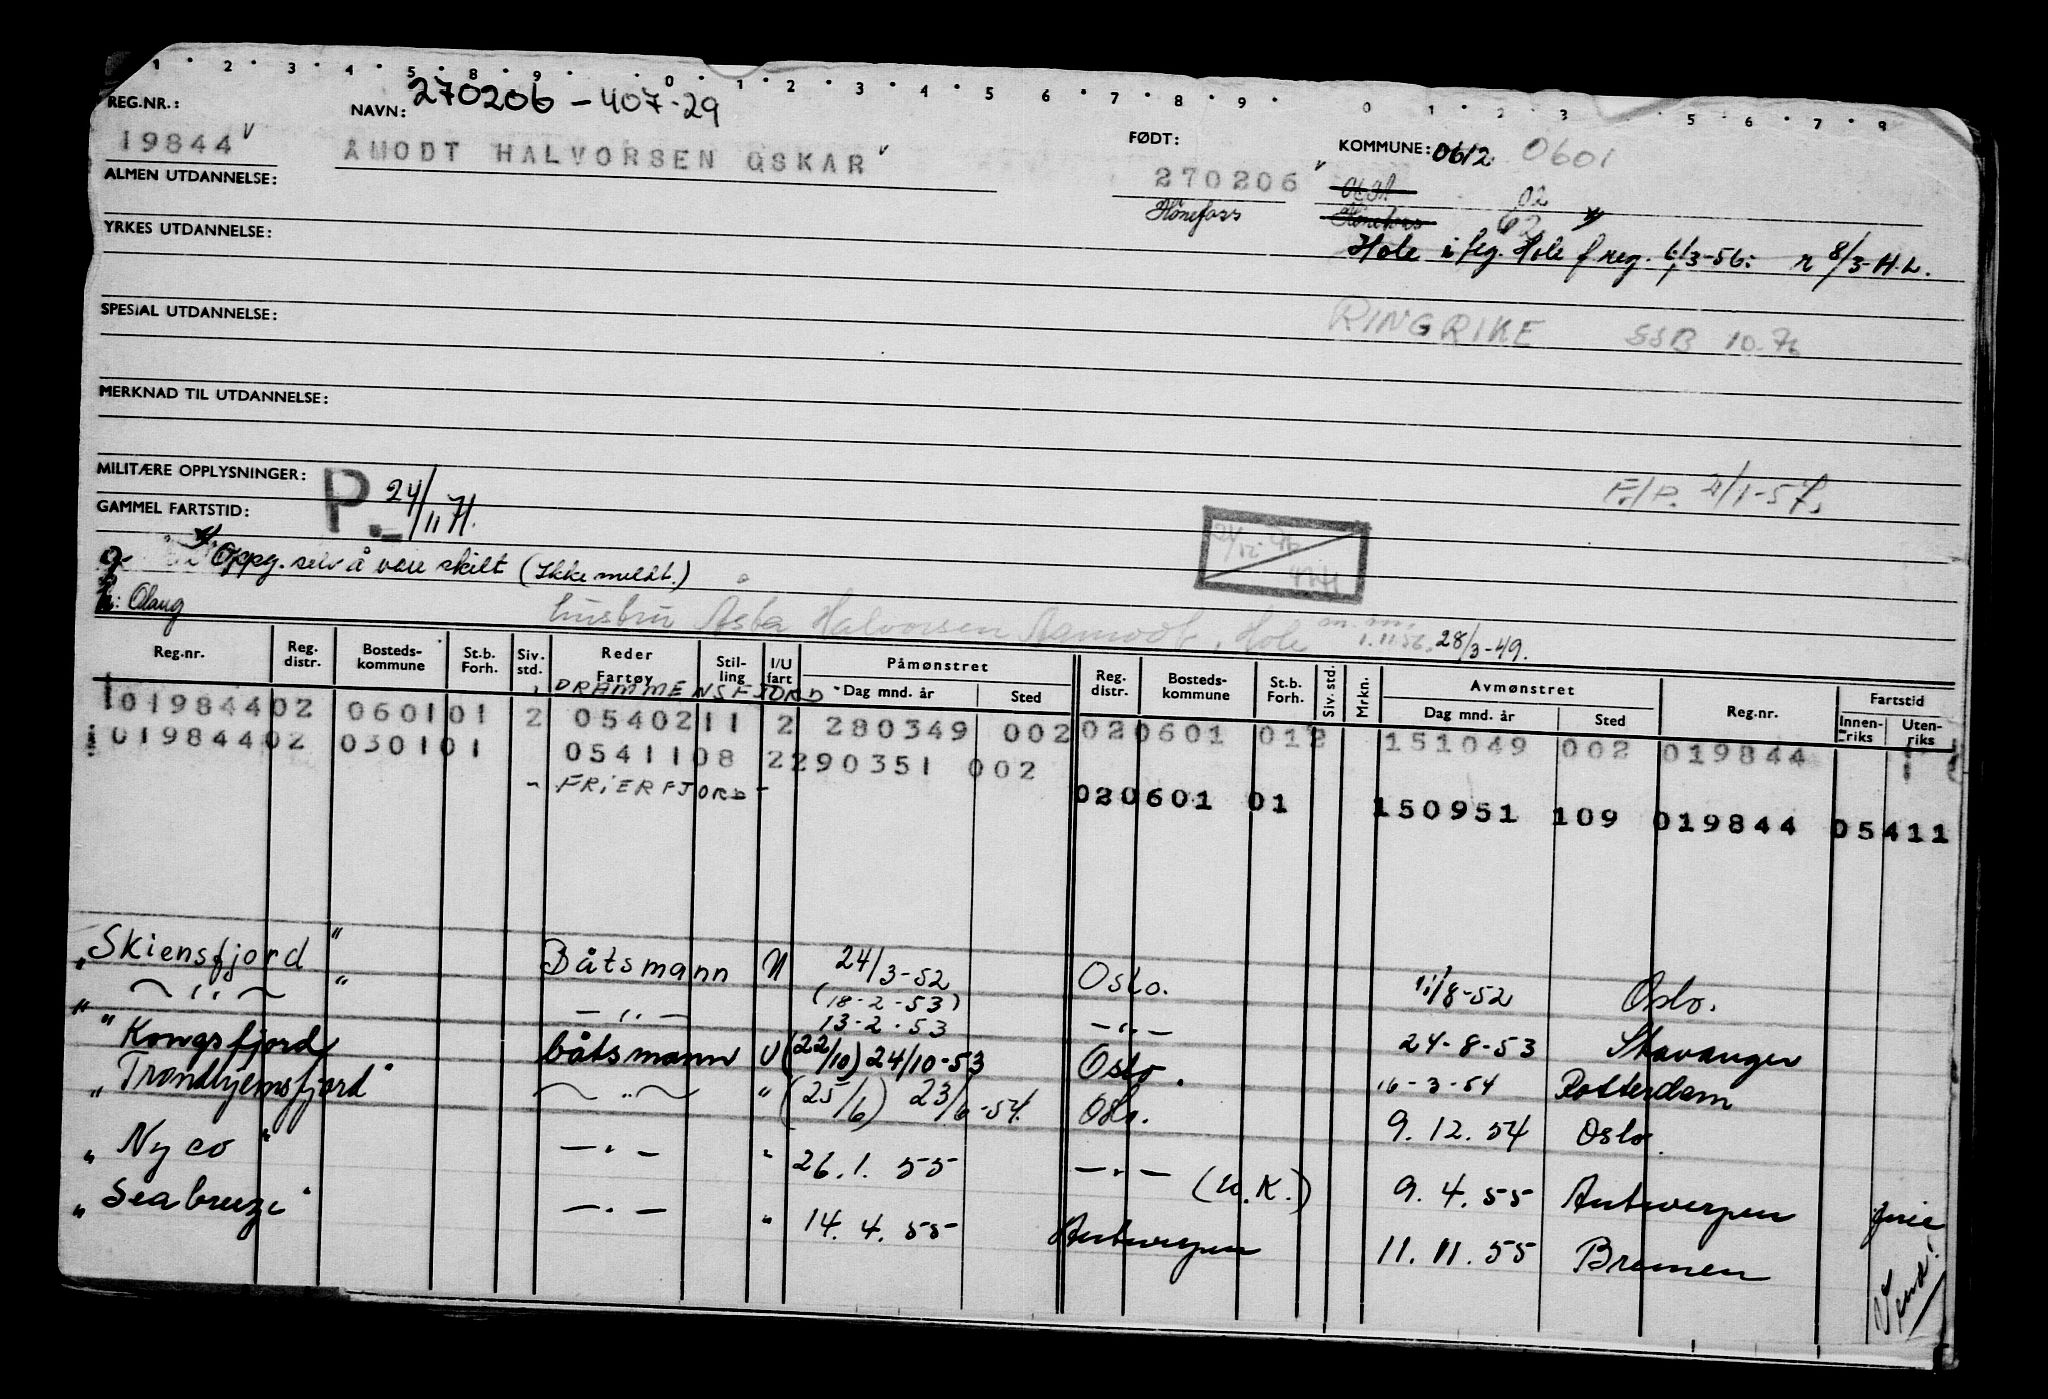 1 2 3 4 5 8 9 0 1 2 3 4 5 6 7 8 9 0 1 2 3 5 6 7 9
REG.NR.: NAVN: 270206 - 407-29 FØDT: KOMMUNE: 0612 0601
19844 v ÅMODT HALVORSEN OSKAR v 270206 v 02
ALMEN UTDANNELSE: Hönefoss Hönefoss 62
YRKES UTDANNELSE: Hole i flg. Hole f reg. 6/3-56: n 8/3-H.L.
SPESIAL UTDANNELSE: RINGRIKE SSB 10-76
MERKNAD TIL UTDANNELSE:
MILITÆRE OPPLYSNINGER: P. 24/11 71. F./P. 4/1-57.
GAMMEL FARTSTID:
Oppg. selv å være skilt (Ikke meldt.)
Olaug hustru Asta Halvorsen Aamodt, Hole 1.11.56. 28/3-49.
Reg.nr. Reg. distr. Bosteds-kommune St.b. Forh. Siv. std. Reder Fartøy Stil-ling I/U fart Påmønstret Dag mnd. år Sted Reg. distr. Bosteds-kommune St.b. Forh. Siv. std. Mrkn. Avmønstret Dag mnd. år Sted Reg.nr. Fartstid Innen-riks Uten-riks
DRAMMENSFJORD
019844 02 0601 01 2 05402 11 2 280349 002 02 0601 01 2 151049 002 019844
019844 02 0301 01 05411 08 2 290351 002
- FRIERFJORD - 020601 01 150951 109 019844 05411
"Skiensfjord" Båtsmann U 24/3-52 Oslo. 11/8-52 Oslo.
" — " — " — " — (18-2-53) 13-2-53 — " — 24-8-53 Stavanger
"Kongsfjord båtsmann U (22/10) 24/10-53 Oslo. 16-3-54 Rotterdam
"Trondhjemsfjord" — " — " (25/6) 23/6-54. Oslo. 9.12.54 Oslo.
"Nyco" — " — " 26.1.55 — " — (U.K.) 9.4.55 Antwerpen
"Seabreeze" — " — " 14.4.55 Antwerpen 11.11.55 Bremen
Vend!